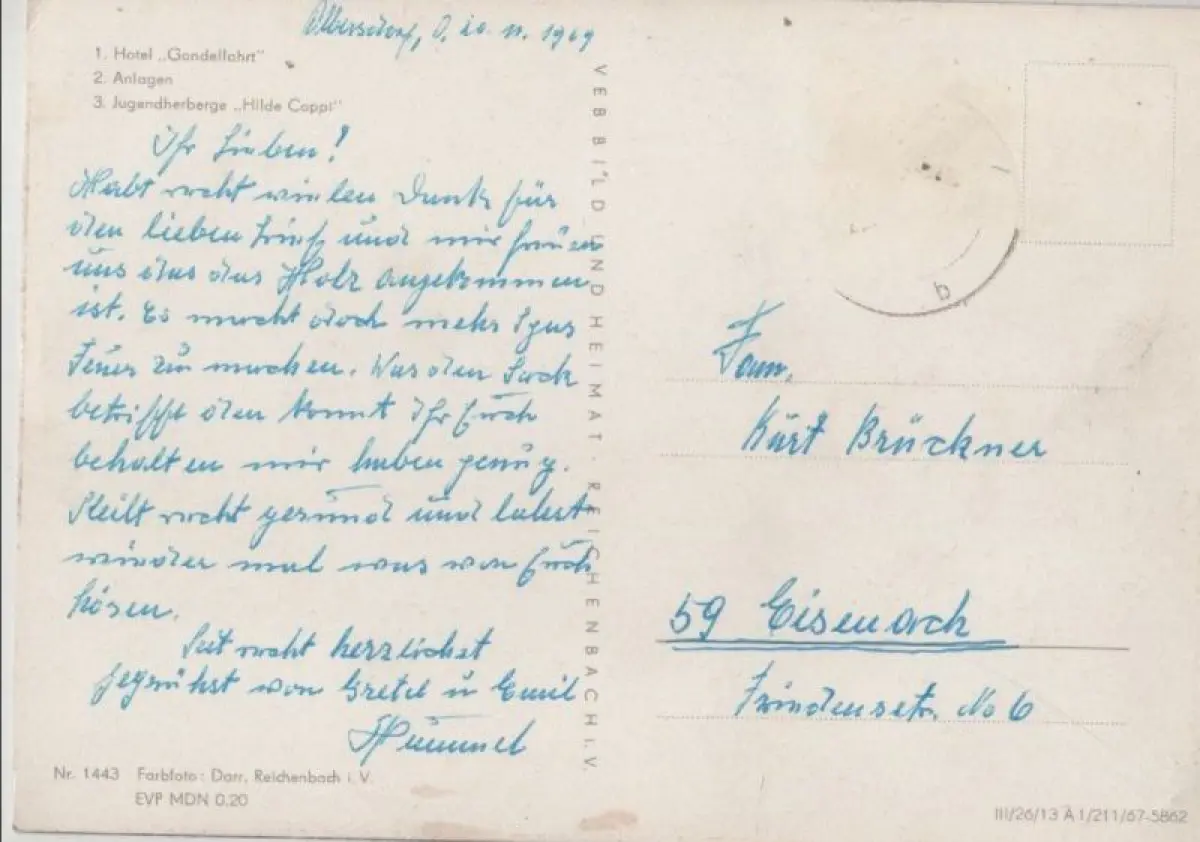 Olbersdorf, d. 20. 11. 1969
1. Hotel „Gondelfahrt"
2. Anlagen
3. Jugendherberge „Hilde Coppi"
Ihr Lieben!
Habt recht vielen Dank für
den lieben Brief und wir freuen
uns das das Holz angekommen
ist. Es macht doch mehr Spas
Feuer zu machen. Was den Sack
betrifft den konnt Ihr Euch
behalten wir haben genug.
Bleibt recht gesund und lahst
wieder mal was von Euch
hören.
Seit recht herzlichst
gegrühst von Gretel u Emil
Hummel
Nr. 1443 Farbfoto: Darr, Reichenbach i. V.
EVP MDN 0,20
VEB BILD UND HEIMAT · REICHENBACH i. V.
b
Fam.
Kurt Brückner
59 Eisenach
Friedensstr. No 6
III/26/13 A 1/211/67-5862